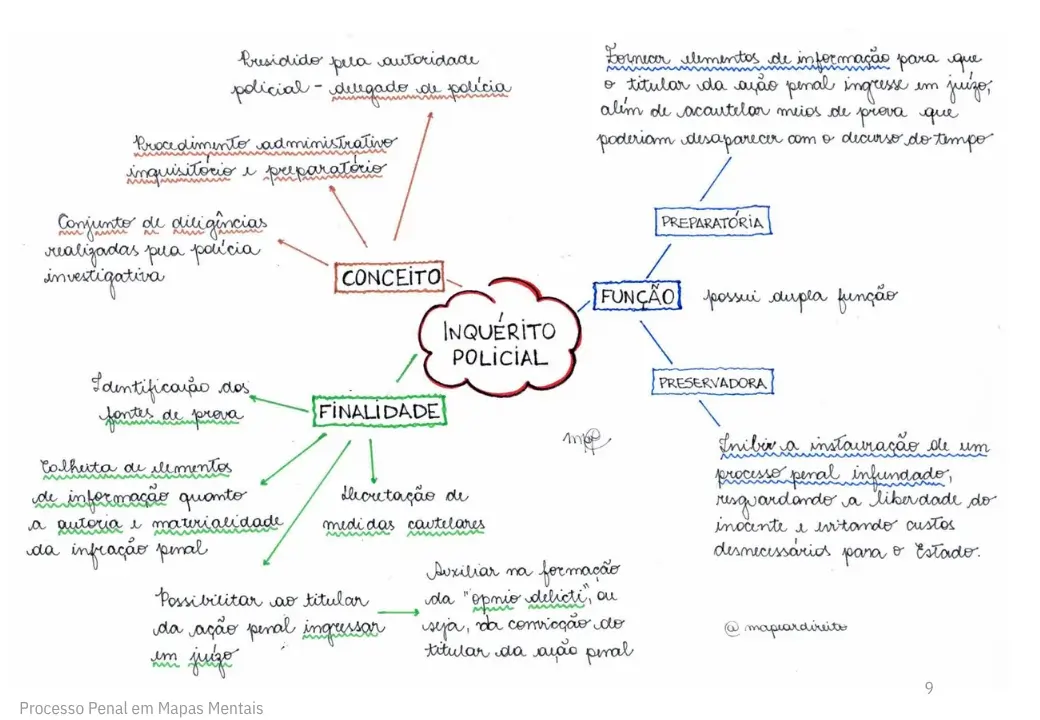 Presidido pela autoridade
policial - delegado de polícia
Procedimento administrativo
inquisitório e preparatório
Conjunto de diligências
realizadas pela polícia
investigativa
CONCEITO
INQUÉRITO
POLICIAL
Fornecer elementos de informação para que
o titular da ação penal ingresse em juízo,
além de acautelar meios de prova que
poderiam desaparecer com o decurso do tempo
PREPARATÓRIA
FUNÇÃO possui dupla função
PRESERVADORA
Inibir a instauração de um
processo penal infundado,
resguardando a liberdade do
inocente e evitando custos
desnecessários para o Estado.
FINALIDADE
Identificação das
fontes de prova
Colheita de elementos
de informação quanto
a autoria e materialidade
da infração penal
Decretação de
medidas cautelares
Possibilitar ao titular
da ação penal ingressar
em juízo
Auxiliar na formação
da "opnio delicti", ou
seja, da convicção do
titular da ação penal
@mapeardireito
9
Processo Penal em Mapas Mentais